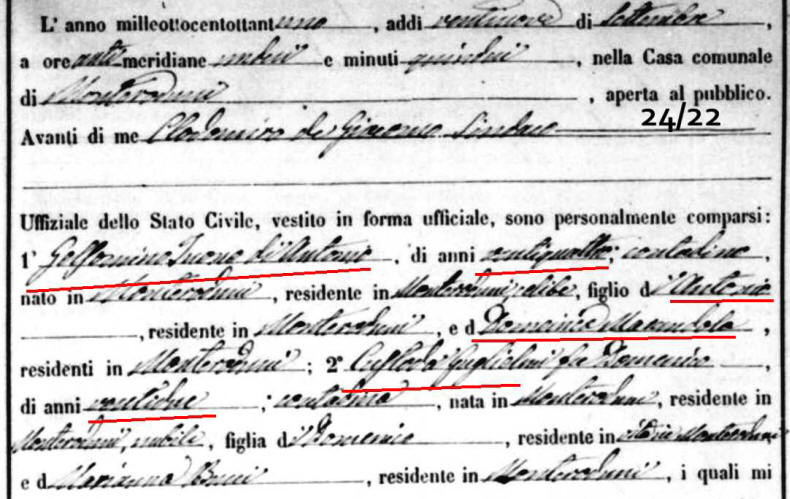 L' anno milleottocentottantuno, addi ventinove di Settembre,
a ore anti meridiane undici e minuti quindici, nella Casa comunale
di Monteroduni, aperta al pubblico.
24/22
Avanti di me Clodomiro de Giacomo Sindaco
Uffiziale dello Stato Civile, vestito in forma ufficiale, sono personalmente comparsi:
1° Gelsomino di Antonio, di anni ventiquattro, contadino,
nato in Monteroduni, residente in Monteroduni celibe, figlio di Antonio
, residente in Monteroduni, e d
residenti in Monteroduni; 2° Custoda Guglielmi fu Domenico,
di anni ventidue; contadina, nata in Monteroduni, residente in
Monteroduni, nubile, figlia di Domenico, residente in Monteroduni
e d Marianna Bucci, residente in Monteroduni, i quali mi